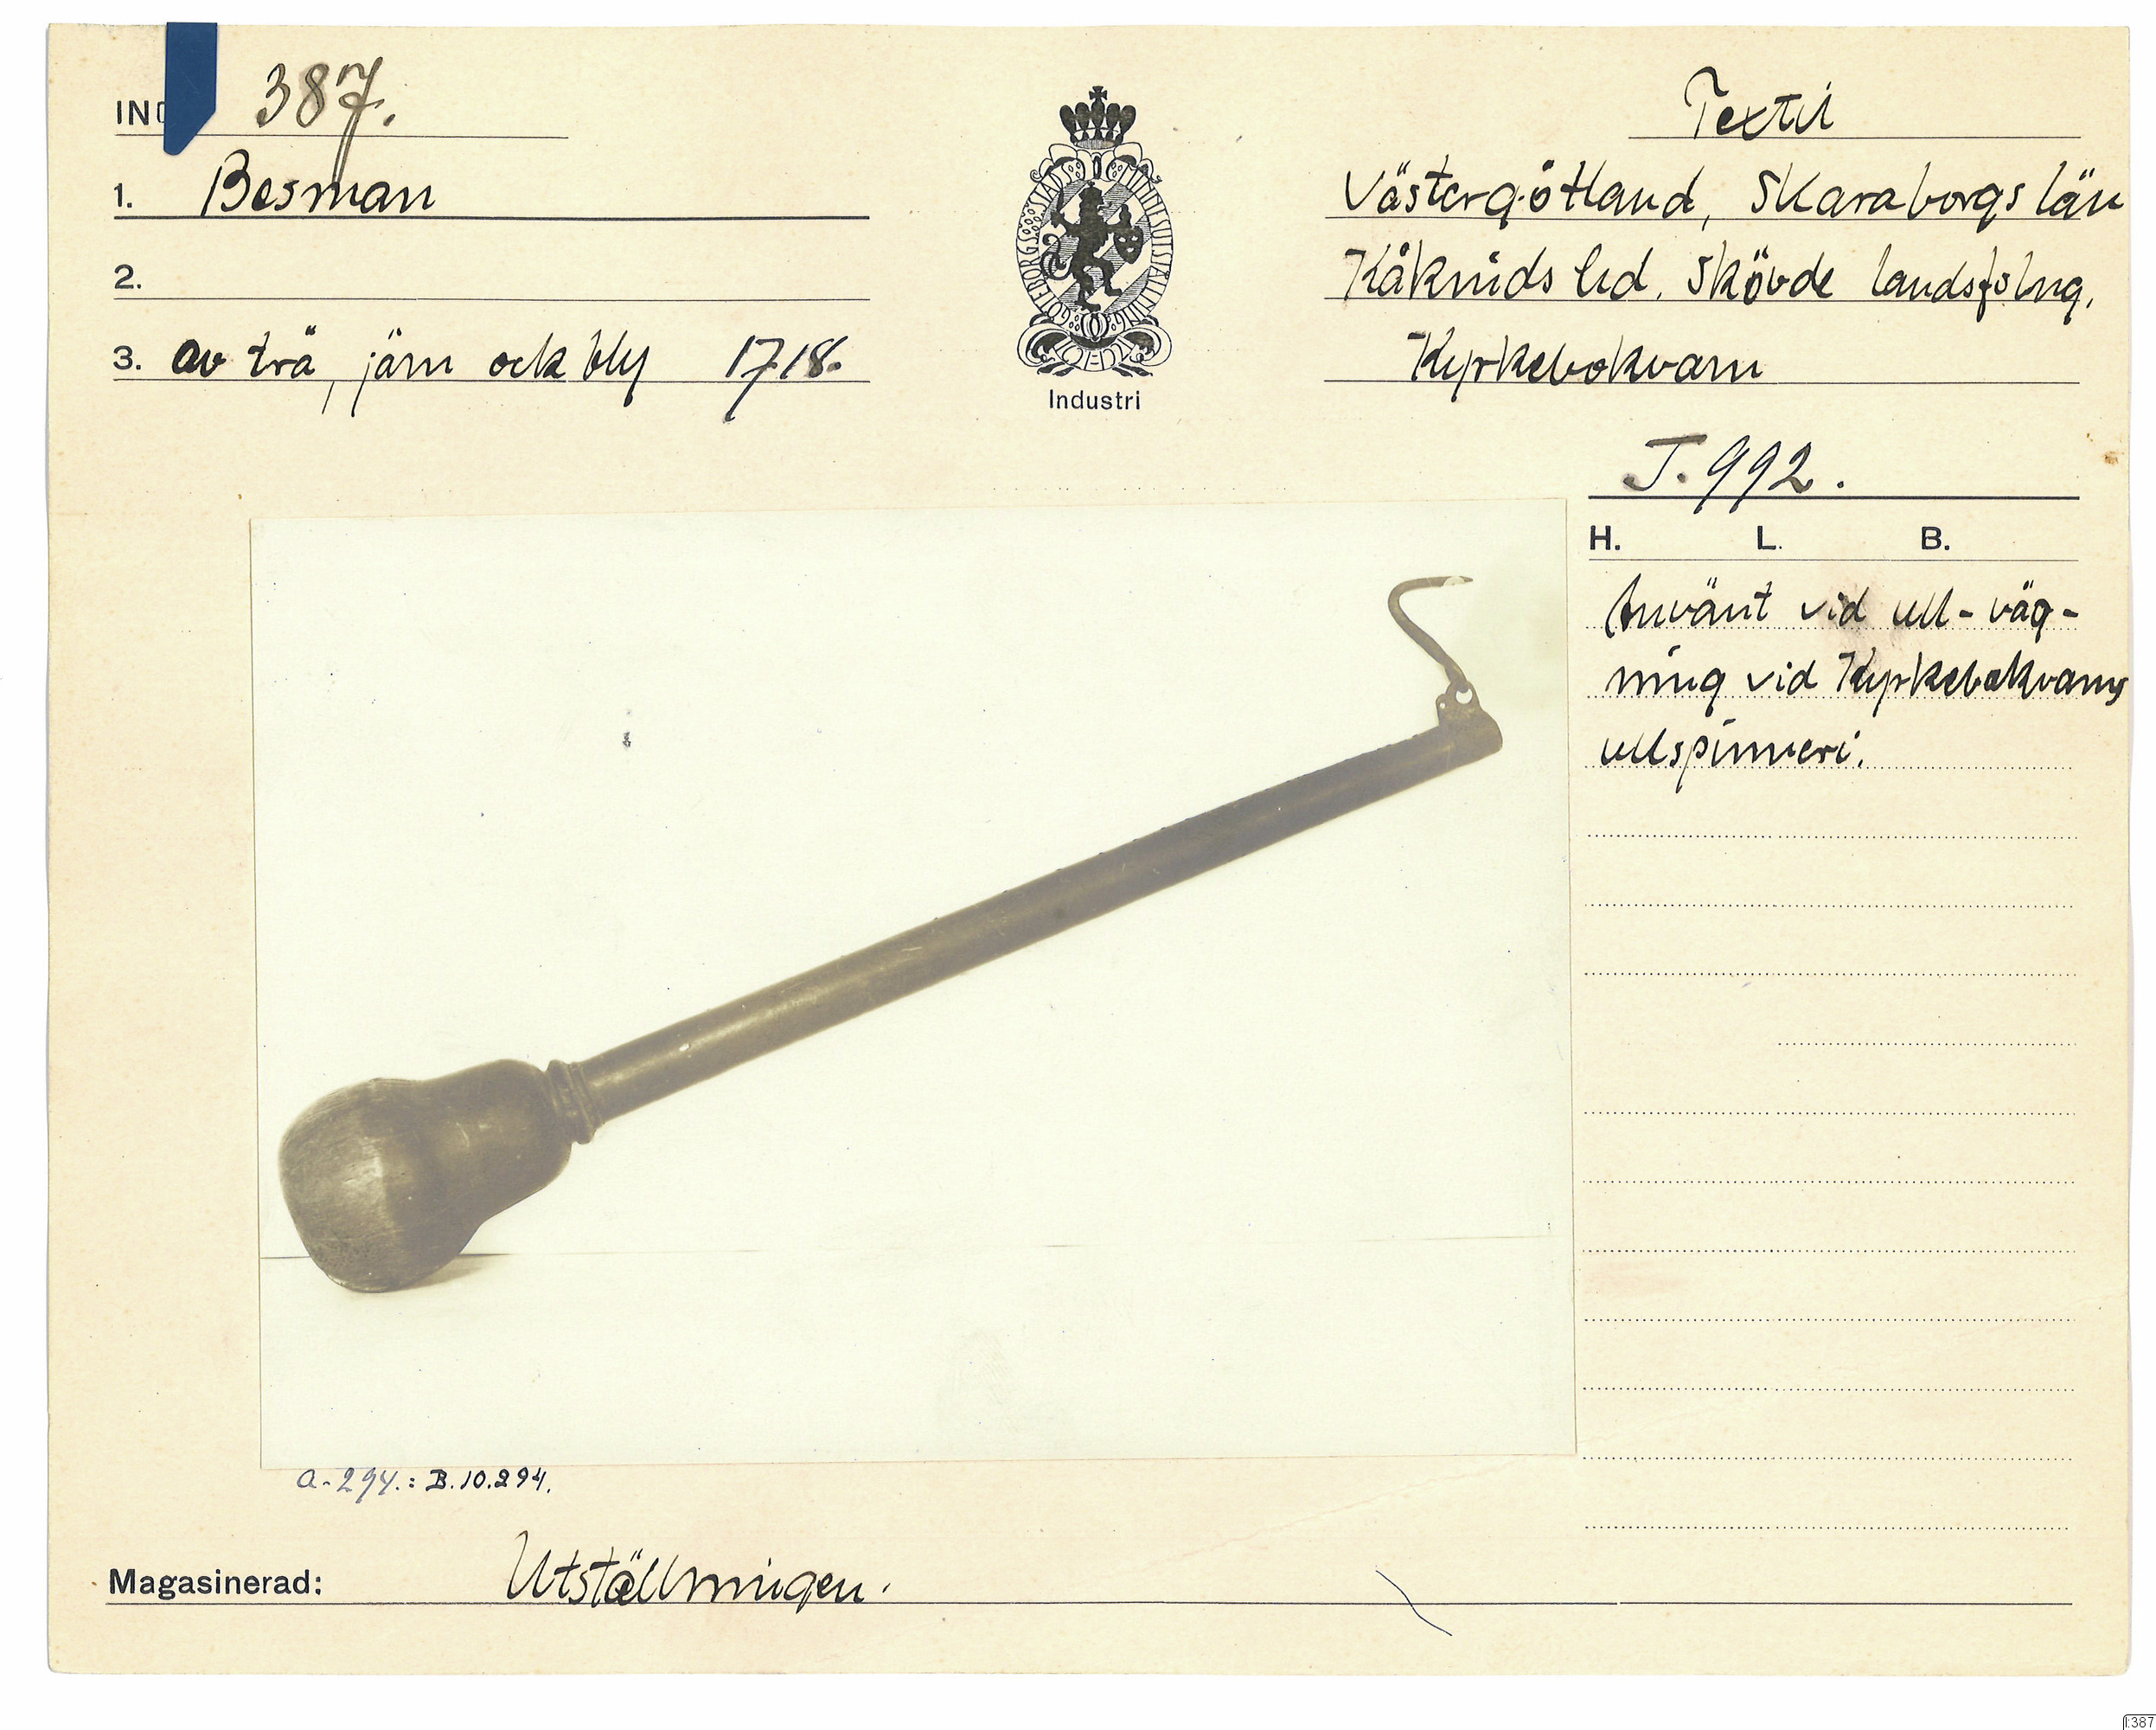 IND 387.
1. Besman
2.
3. av trä, järn ock bly 1718.
GÖTEBORGS STADS JUBILEUMSUTSTÄLLNING
Industri
Textil
Västergötland, Skaraborgs län
Kåkinds hd. Skövde landsfslng.
Kyrkebokvarn
J. 992.
H. L. B.
Använt vid ull-väg-
ning vid Kyrkebokvarns
ullspinneri.
a-294.: B.10.294.
Magasinerad: Utställningen.
I:387